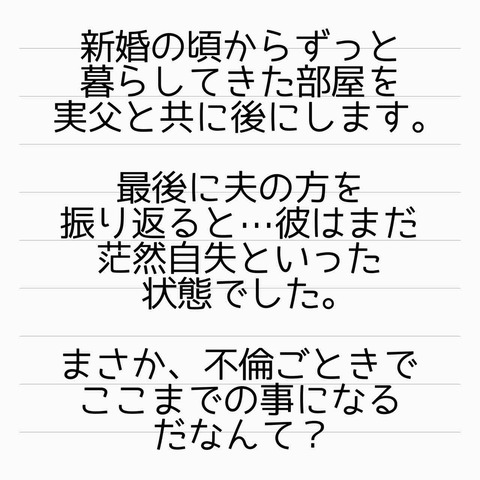 新婚の頃からずっと
暮らしてきた部屋を
実父と共に後にします。
最後に夫の方を
振り返ると…彼はまだ
茫然自失といった
状態でした。
まさか、不倫ごときで
ここまでの事になる
だなんて？